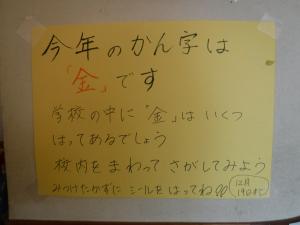 今年のかん字は
「金」です
学校の中に「金」は いくつ
はってあるでしょう
校内を まわって さがしてみよう
みつけたかずに シールを はってね
12月
19日まで